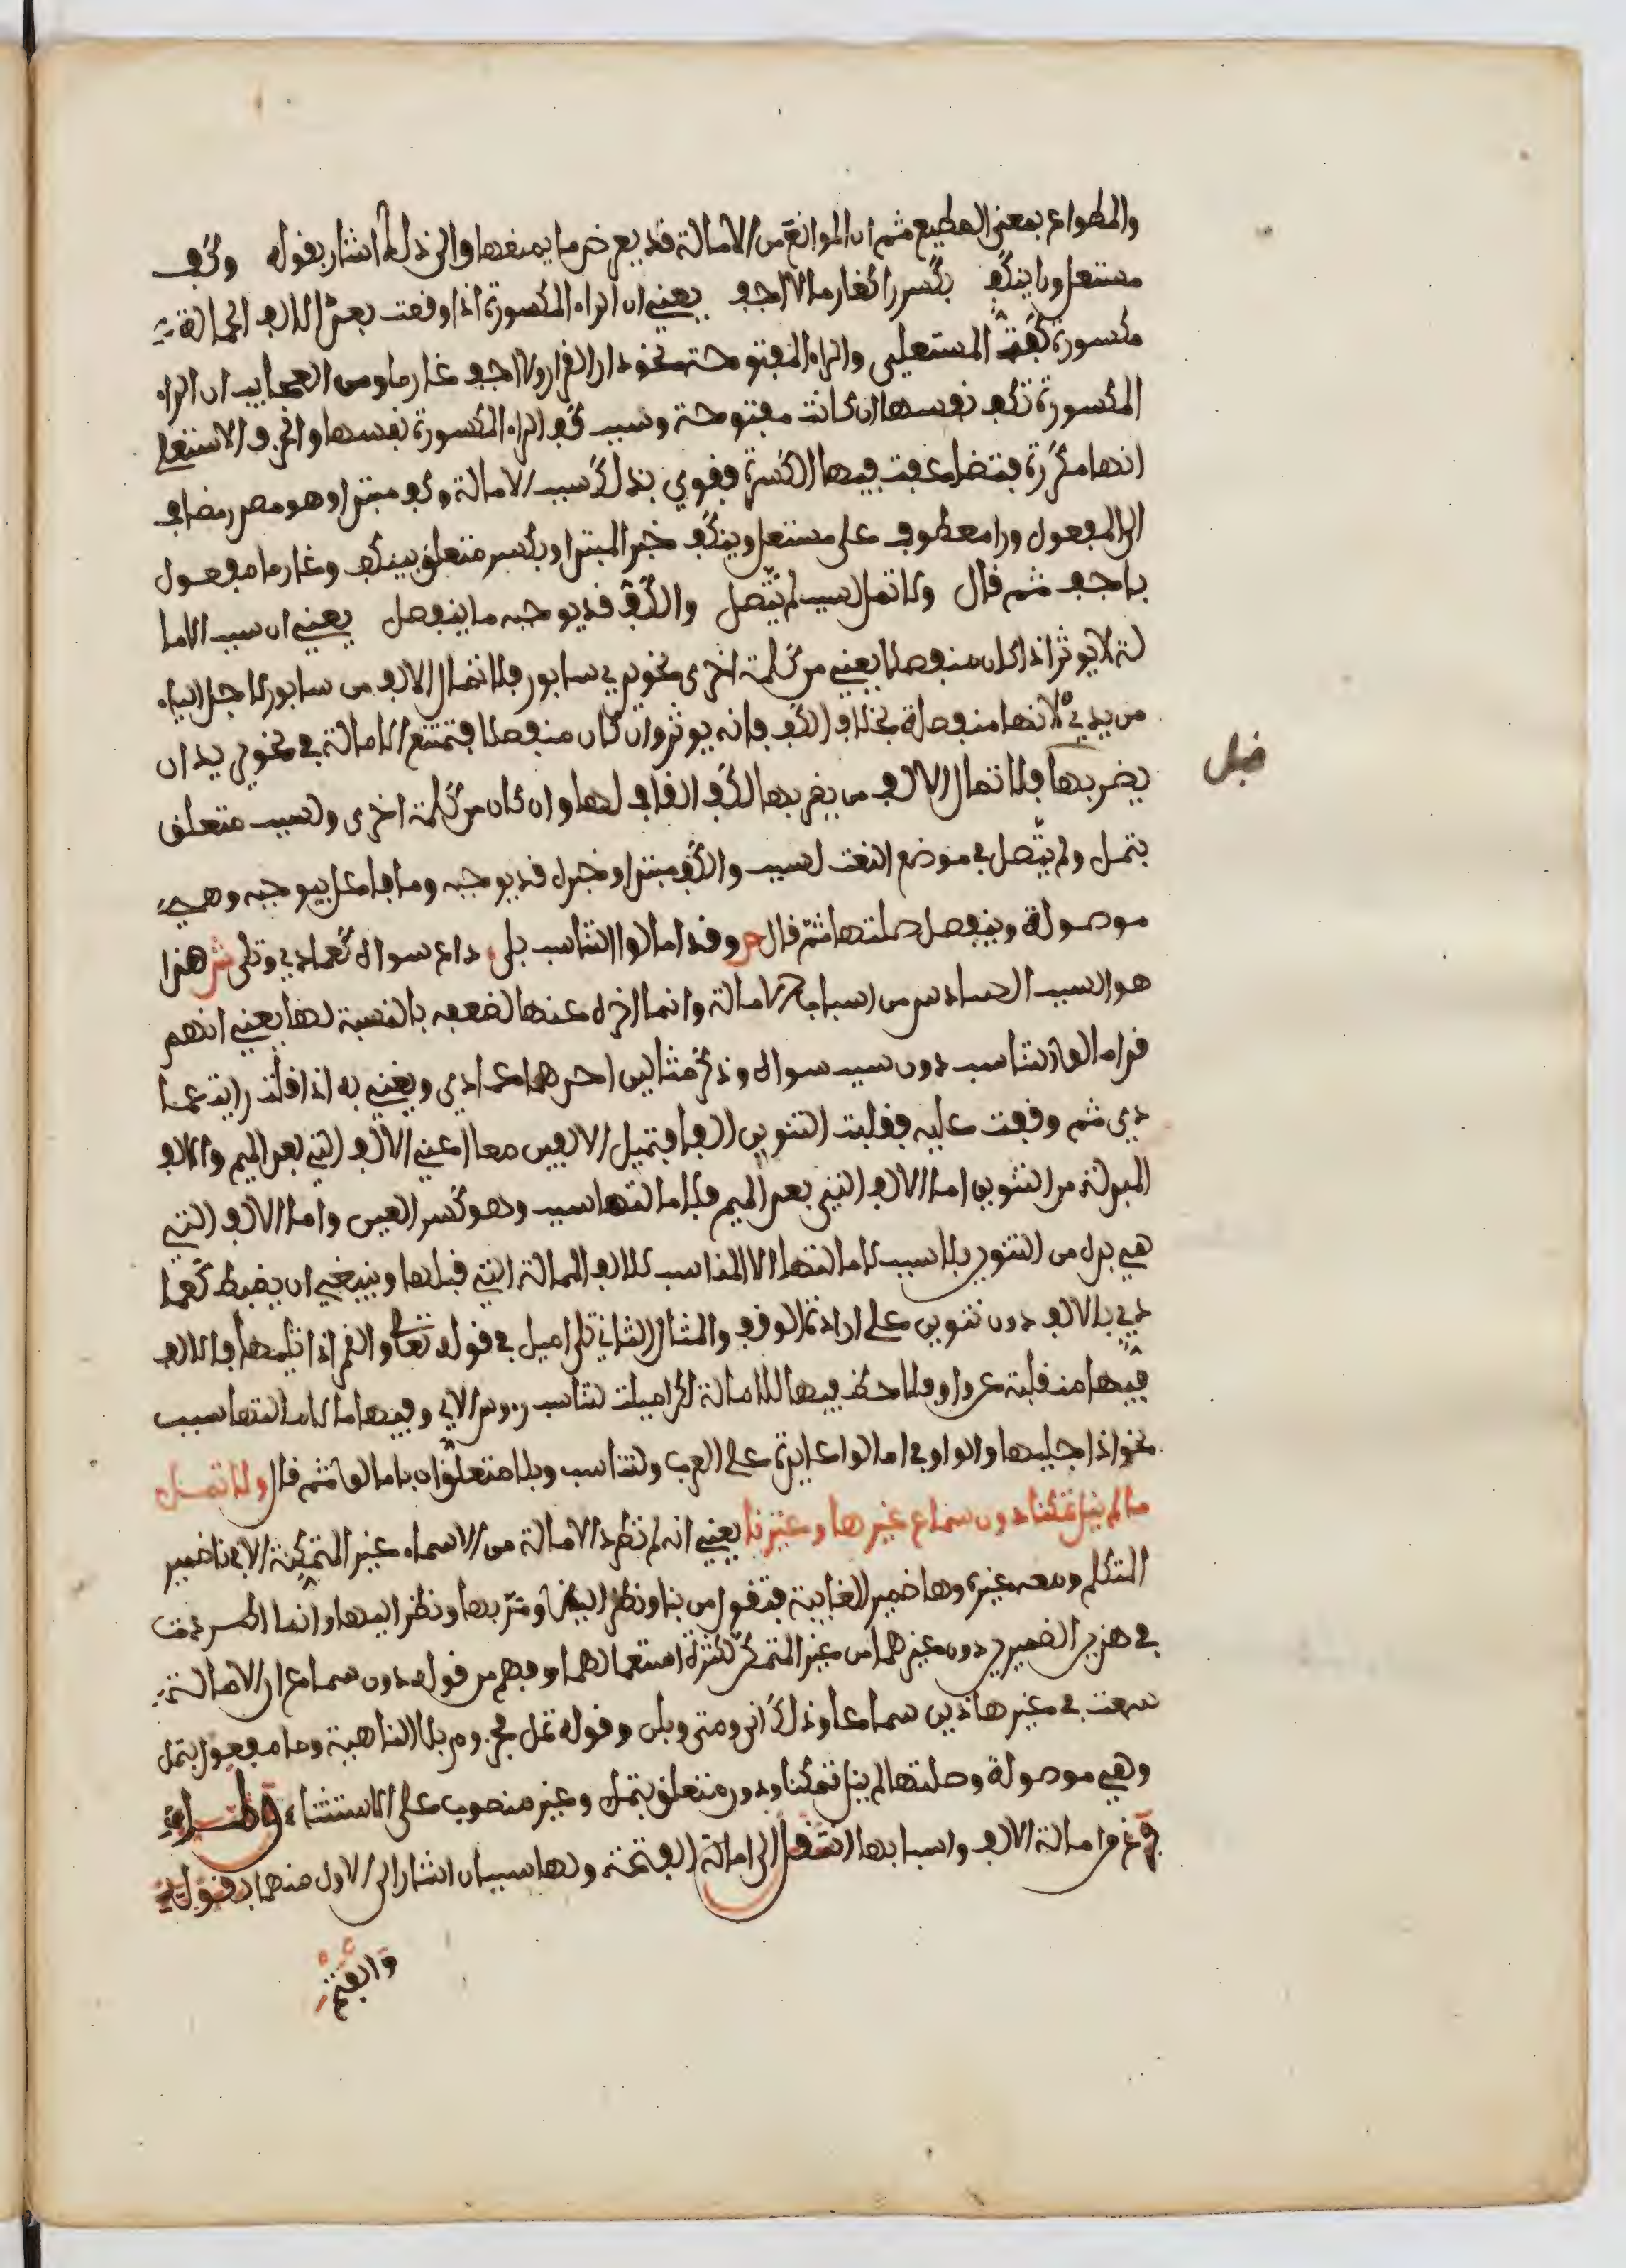 والمطواع بمعنى المطيع ثم ان الموانع من الامالة قد يعرض ما يمنعها والى ذلك اشار بقوله وكف
مستعل ورا ينكف بكسر را كغارما لا اجفو يعني ان الراء المكسورة اذا وقعت بعد الالف الممالة
مكسورة كفت المستعلى والراء المفتوحة نحو دار القرار ولا اجفو غارما ومن العجايب ان الراء
المكسورة تكف نفسها ان كانت مفتوحة وسبب كف الراء المكسورة نفسها والحرف الاستعلا
انها مكررة فتضاعفت فيها الكسرة فقوي بذلك سبب الامالة وكف مبتدا وهو مصدر مضاف
الى المفعول ورا معطوف على مستعل وينكف خبر المبتدا وبكسر متعلق بينكف وغارما مفعول
باجفو ثم قال ولا تمل لسبب لم يتصل والكف قد يوجبه ما ينفصل يعني ان سبب الاما
لة لا يوثر اذا كان منفصلا يعني من كلمة اخرى نحو يدي سابور فلا تمال الالف من سابور لاجل الياء
من يدي لانها منفصلة بخلاف الكف فانه يوثر وان كان منفصلا فتمتنع الامالة في نحو يريد ان
يضربها فلا تمال الالف من يضربها لكف القاف لها وان كان من كلمة اخرى ولسبب متعلق
قبل
بتمل ولم يتصل في موضع النعت لسبب والكف مبتدا وخبره قد يوجبه وما فاعل بيوجبه وهي
موصولة وينفصل صلتها ثم قال ص وقد امالوا لتناسب بلا داع سواه كعمادي وتلى ش هذا
هو السبب السادس من اسباب الامالة وانما اخره عنها لضعفه بالنسبة لها يعني انهم
قد امالوا لتناسب دون سبب سواه وذكر مثالين احدهما عمادي ويعني به اذا قلت رايت عما
دي ثم وقفت عليه فقلبت التنوين الفا فتميل الالفين معا اعني الالف التي بعد الميم والالف
المبدلة من التنوين اما الالف التي بعد الميم فلامالتها سبب وهو كسر العين واما الالف التي
هي بدل من التنوين بلا سبب لامالتها الا المناسب للالف الممالة التي قبلها وينبغي ان يضبط كعما
دي بالالف دون تنوين على ارادة الوقف والمثال الثاني تلى اميل في قوله تعالى والقمر اذا تليها فالالف
فيها منقلبة عن واو فلا حظ فيها للامالة لكن اميلت لتناسب روس الاي وفيها ما لامالتها سبب
نحو اذا جليها والواو في امالوا عايدة على العرب ولتناسب وبلا متعلقان بامالوا ثم قال ولا تمل
ما لم ينل تمكنا دون سماع غير ها وغير نا يعني انه لم تطرد الامالة من الاسماء غير المتمكنة الا في نا ضمير
المتكلم ومعه غيره وها ضمير الغايبة فتقول من بنا ونظر الينا ومر بها ونظر اليها وانما اطردت
في هذين الضميرين دون غيرهما من غير المتمكن لكثرة استعمالهما وفهم من قوله دون سماع ان الامالة
سمعت في غير هاذين سماعا وذلك انى ومتى وبلى وقوله تمل مجزوم بلا الناهية وما مفعول بتمل
وهي موصولة وصلتها لم ينل تمكنا ودون متعلق بتمل وغير منصوب على الاستثناء ولما
فرغ من امالة الالف واسبابها انتقل الى امالة الفتحة ولها سببان اشار الى الاول منهما بقوله
والفتح